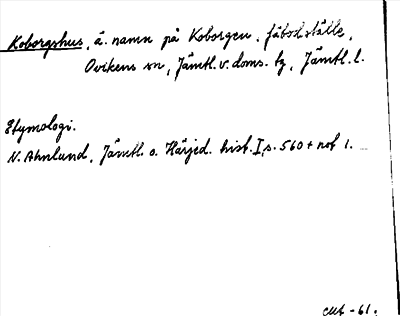 Koborgshus, ä. namn på Koborgen, fäbodställe,
Ovikens sn, Jämtl. v. doms. tg, Jämtl. l.
Etymologi.
N. Ahnlund, Jämtl. o. Härjed. hist. I, s. 560 + not 1.
-61.